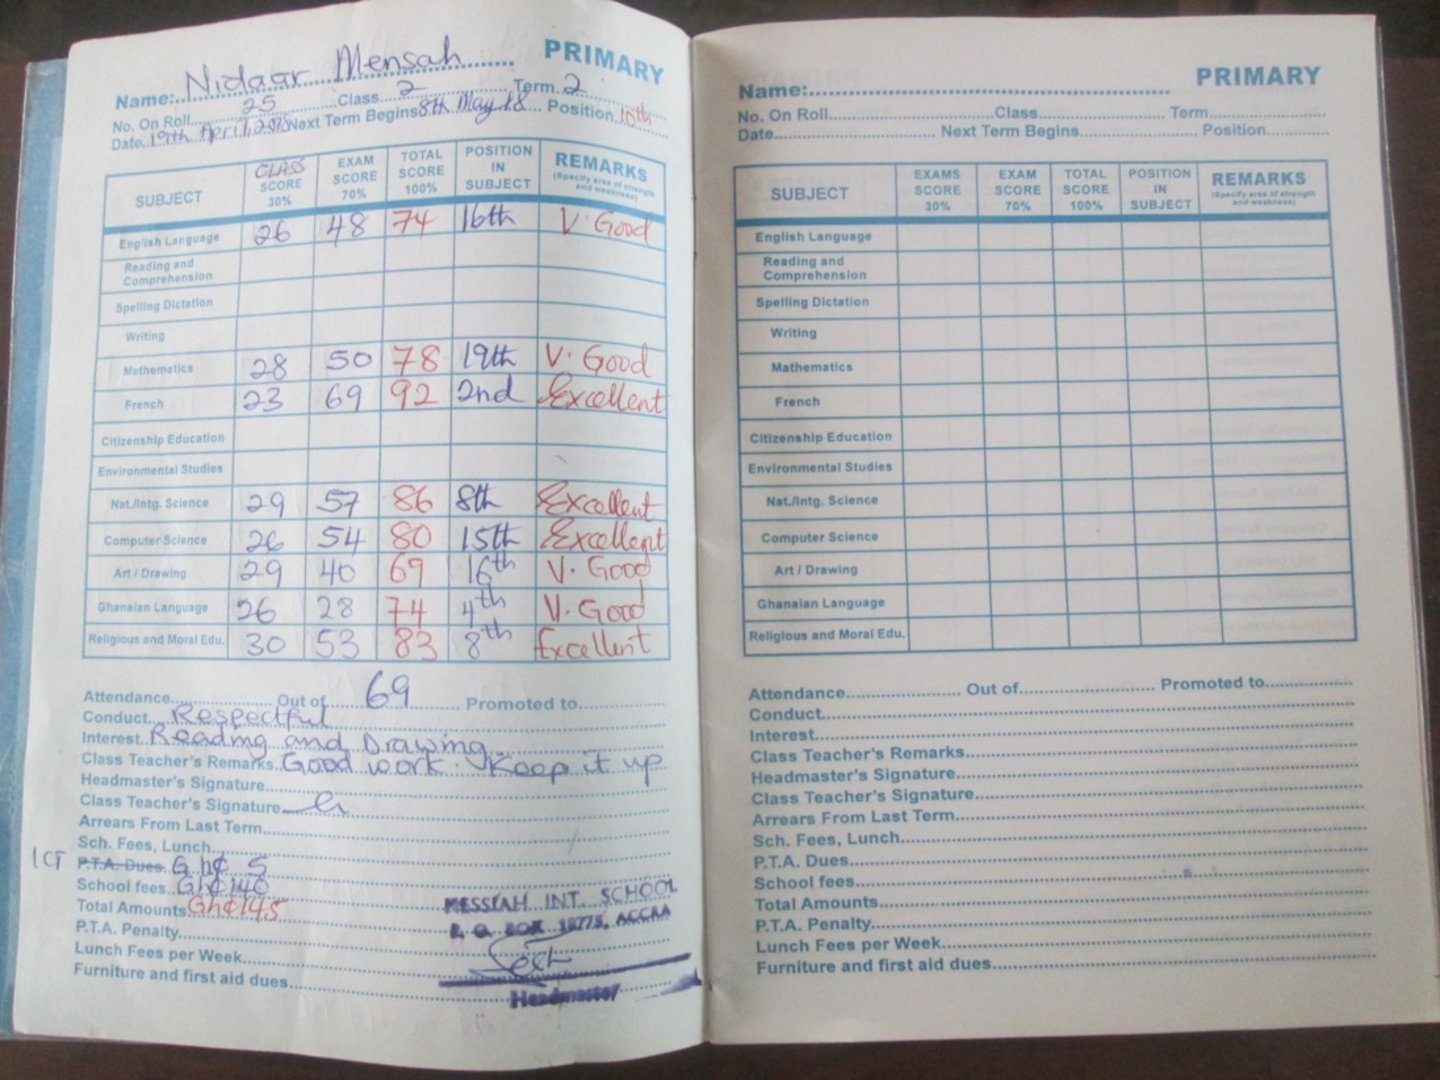 PRIMARY
Name: Nidaar Mensah
No. On Roll 25 Class 2 Term 2
Date 19th April, Next Term Begins 8th May 18 Position 10th
SUBJECT CLASS SCORE 30% EXAM SCORE 70% TOTAL SCORE 100% POSITION IN SUBJECT REMARKS (Specify area of strength and weakness)
English Language 26 48 74 16th V. Good
Reading and Comprehension
Spelling Dictation
Writing
Mathematics 28 50 78 19th V. Good
French 23 69 92 2nd Excellent
Citizenship Education
Environmental Studies
Nat./Intg. Science 29 57 86 8th Excellent
Computer Science 26 54 80 15th Excellent
Art / Drawing 29 40 69 16th V. Good
Ghanaian Language 26 28 74 4th V. Good
Religious and Moral Edu. 30 53 83 8th Excellent
Attendance Out of 69 Promoted to
Conduct Respectful
Interest Reading and Drawing
Class Teacher's Remarks Good work. Keep it up
Headmaster's Signature
Class Teacher's Signature
Arrears From Last Term
Sch. Fees, Lunch
ICT P.T.A. Dues Gh¢ 5
School fees Gh¢140
Total Amounts Gh¢145
P.T.A. Penalty
Lunch Fees per Week
Furniture and first aid dues
MESSIAH INT. SCHOOL
P. O. BOX 18775, ACCRA
Headmaster
PRIMARY
Name:
No. On Roll Class Term
Date Next Term Begins Position
SUBJECT EXAMS SCORE 30% EXAM SCORE 70% TOTAL SCORE 100% POSITION IN SUBJECT REMARKS (Specify area of strength and weakness)
English Language
Reading and Comprehension
Spelling Dictation
Writing
Mathematics
French
Citizenship Education
Environmental Studies
Nat./Intg. Science
Computer Science
Art / Drawing
Ghanaian Language
Religious and Moral Edu.
Attendance Out of Promoted to
Conduct
Interest
Class Teacher's Remarks
Headmaster's Signature
Class Teacher's Signature
Arrears From Last Term
Sch. Fees, Lunch
P.T.A. Dues
School fees
Total Amounts
P.T.A. Penalty
Lunch Fees per Week
Furniture and first aid dues